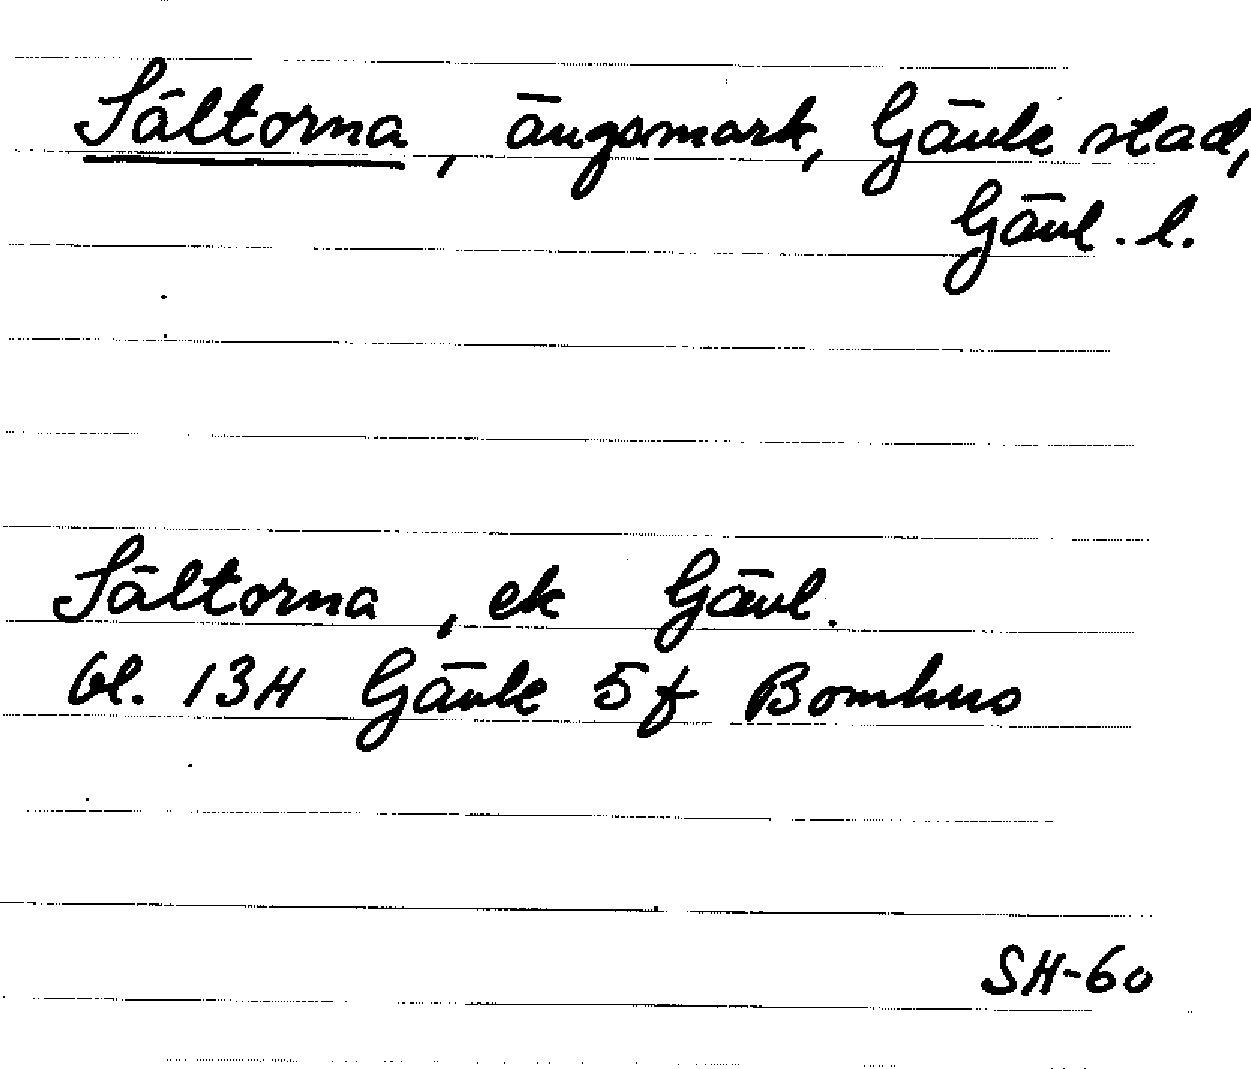 Sältorna, ängsmark, Gävle stad,
Gävl. l.
Sältorna, ek Gävl.
bl. 13H Gävle 5f Bomhus
SH-60